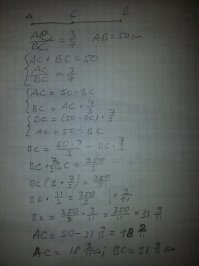 A C B
AC/BC = 3/7 AB = 50 см
{AC + BC = 50
AC/BC = 3/7
{AC = 50 - BC
BC = AC · 7/3
{BC = (50 - BC) · 7/3
AC = 50 - BC
BC = 50·7/3 - BC · 7/3
BC + 7/3 BC = 350/3
BC (1 + 7/3) = 350/3
BC · 11/3 = 350/3 | × 3/11
BC = 350/3 · 3/11 = 350/11 = 31 9/11
AC = 50 - 31 9/11 = 18 2
AC = 18 2/11 ; BC = 31 9/11 см